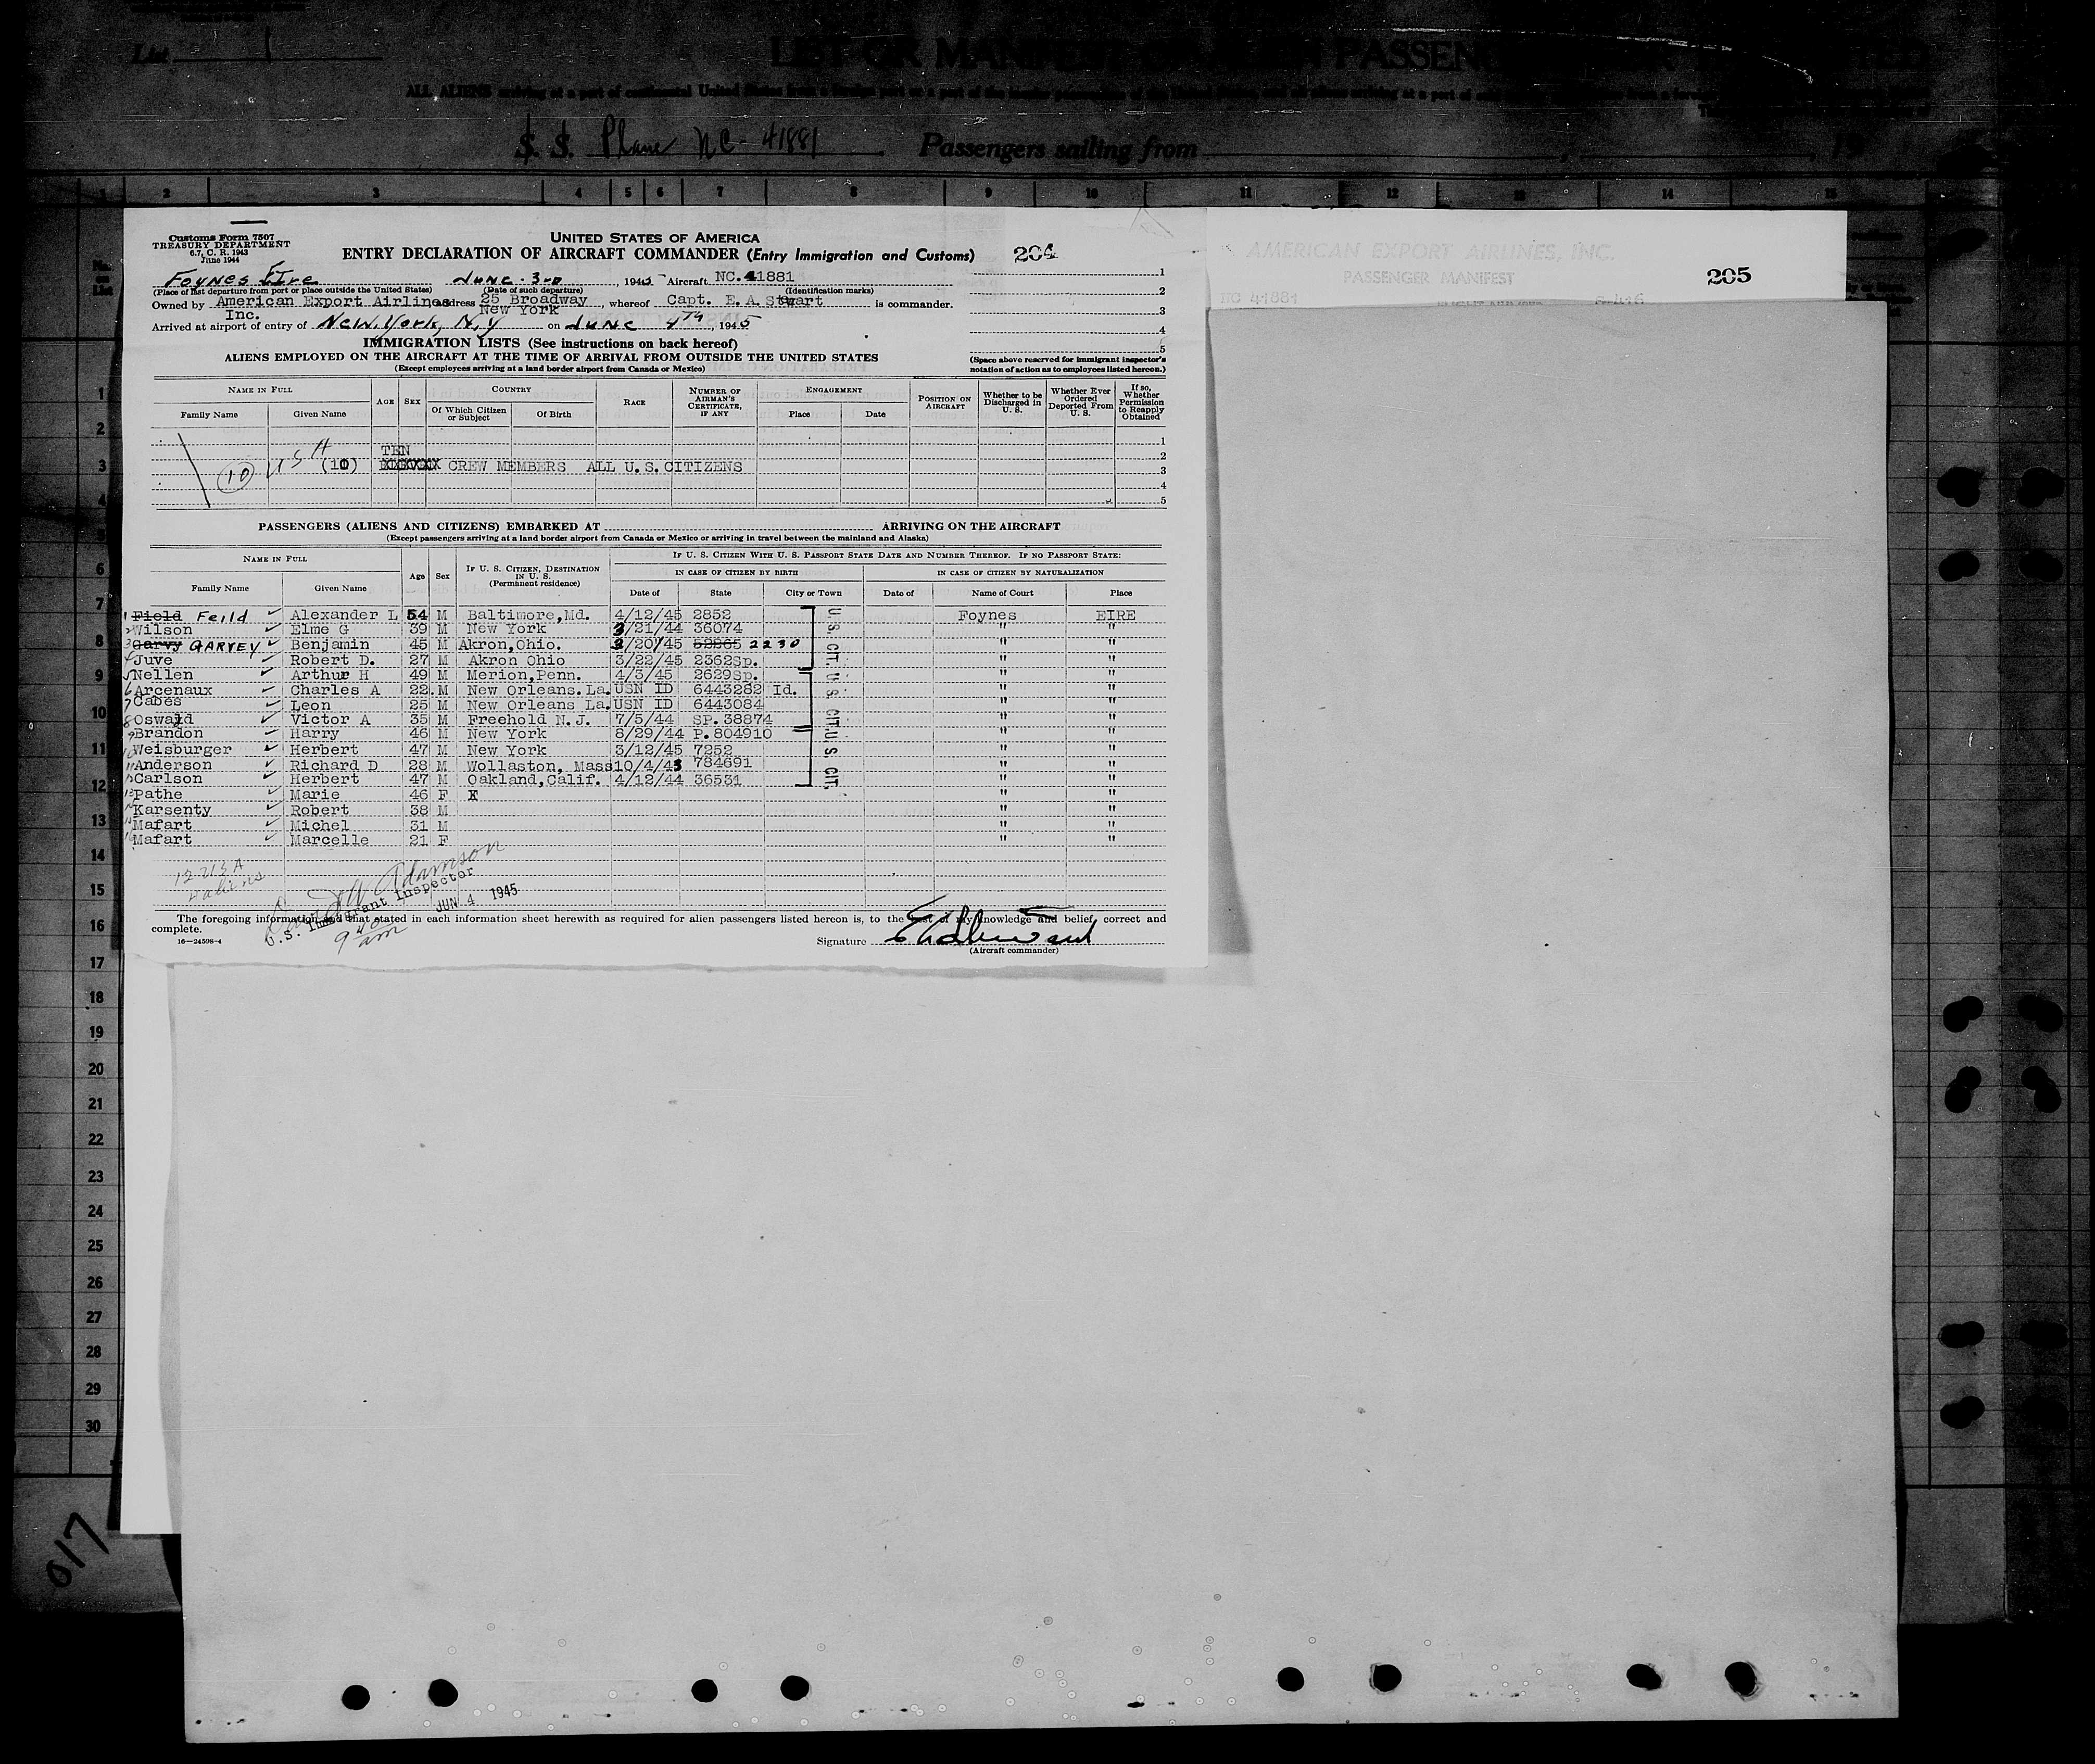 List 1
LIST OR MANIFEST OF ALIEN PASSENGERS
ALL ALIENS arriving at a port of continental United States from a foreign port or a port of the insular possessions of the United States
S. S. Plane NC-41881 Passengers sailing from , 19
1 2 3 4 5 6 7 8 9 10 11 12 13 14 15
Customs Form 7507
TREASURY DEPARTMENT
6.7, C. R. 1943
June 1944
UNITED STATES OF AMERICA
ENTRY DECLARATION OF AIRCRAFT COMMANDER (Entry Immigration and Customs)
204
Foynes Eire June 3rd, 1945 Aircraft NC.41881
(Place of last departure from port or place outside the United States) (Date of such departure) (Identification marks)
Owned by American Export Airlines Inc. Address 25 Broadway New York, whereof Capt. E. A. Stewart is commander.
Arrived at airport of entry of New York, N.Y on June 4th, 1945
1
2
3
4
5
IMMIGRATION LISTS (See instructions on back hereof)
ALIENS EMPLOYED ON THE AIRCRAFT AT THE TIME OF ARRIVAL FROM OUTSIDE THE UNITED STATES
(Except employees arriving at a land border airport from Canada or Mexico)
(Space above reserved for immigrant inspector's
notation of action as to employees listed hereon.)
NAME IN FULL
Family Name Given Name
AGE SEX
COUNTRY
Of Which Citizen or Subject Of Birth
RACE
NUMBER OF AIRMAN'S CERTIFICATE, IF ANY
ENGAGEMENT
Place Date
POSITION ON AIRCRAFT
Whether to be Discharged in U. S.
Whether Ever Ordered Deported From U. S.
If so, Whether Permission to Reapply Obtained
1
2
3
4
5
(10) USA (10) TEN CREW MEMBERS ALL U.S.CITIZENS
PASSENGERS (ALIENS AND CITIZENS) EMBARKED AT ARRIVING ON THE AIRCRAFT
(Except passengers arriving at a land border airport from Canada or Mexico or arriving in travel between the mainland and Alaska)
NAME IN FULL
Family Name Given Name
Age Sex
IF U. S. CITIZEN, DESTINATION IN U. S. (Permanent residence)
IF U. S. CITIZEN WITH U. S. PASSPORT STATE DATE AND NUMBER THEREOF. IF NO PASSPORT STATE:
IN CASE OF CITIZEN BY BIRTH IN CASE OF CITIZEN BY NATURALIZATION
Date of State City or Town Date of Name of Court Place
1 Field Feild Alexander L 54 M Baltimore,Md. 4/12/45 2852 Foynes EIRE
2 Wilson Elme G 39 M New York 3/21/44 36074 " "
3 Garvy GARVEY Benjamin 45 M Akron,Ohio. 3/20/45 52865 2230 " "
4 Juve Robert D. 27 M Akron Ohio 3/22/45 2362Sp. " "
5 Nellen Arthur H 49 M Merion,Penn. 4/3/45 2629Sp. " "
6 Arcenaux Charles A 22.M New Orleans.La. USN ID 6443282 Id. " "
7 Cabes Leon 25 M New Orleans La. USN ID 6443084 " "
8 Oswald Victor A 35 M Freehold N.J. 7/5/44 SP.38874 " "
9 Brandon Harry 46 M New York 8/29/44 P.804910 " "
10 Weisburger Herbert 47 M New York 3/12/45 7252 " "
11 Anderson Richard D 28 M Wollaston, Mass 10/4/43 784691 " "
12 Carlson Herbert 47 M Oakland,Calif. 4/12/44 36531 " "
13 Pathe Marie 46 F X " "
14 Karsenty Robert 38 M " "
15 Mafart Michel 31 M " "
16 Mafart Marcelle 21 F " "
U.S. CIT.
U.S. CIT
U.S. CIT.
12 USA
4 aliens
Adamson
U.S. Immigrant Inspector
JUN 4 1945
9 40 am
The foregoing information and that stated in each information sheet herewith as required for alien passengers listed hereon is, to the best of my knowledge and belief, correct and
complete.
16—24508-4
Signature E A Stewart
(Aircraft commander)
AMERICAN EXPORT AIRLINES, INC.
PASSENGER MANIFEST
205
NC 41881
1
2
3
4
5
6
7
8
9
10
11
12
13
14
15
16
17
18
19
20
21
22
23
24
25
26
27
28
29
30
017